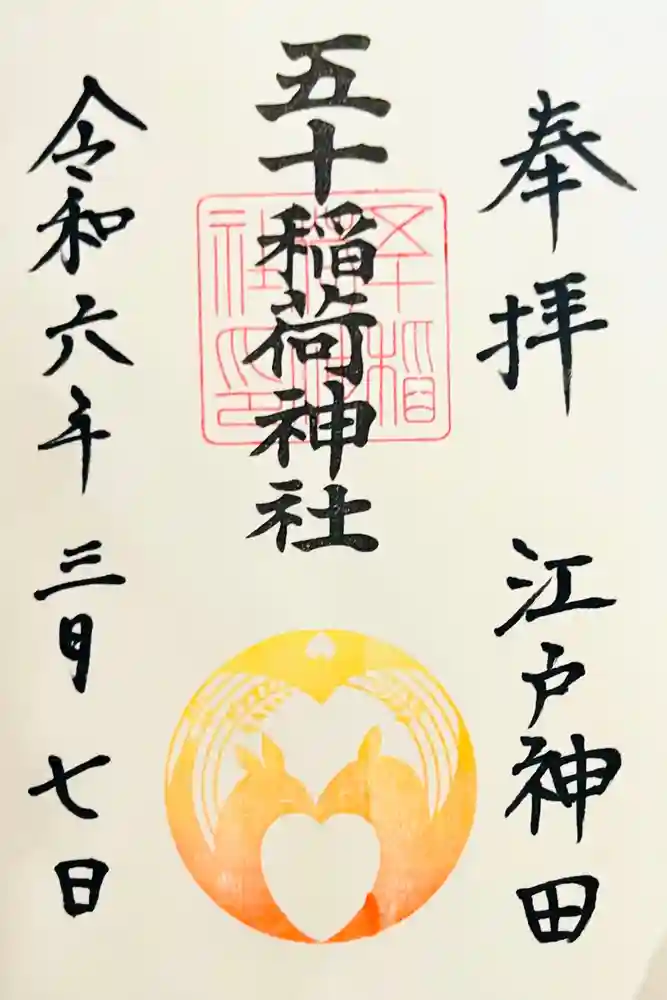 奉拝 江戸神田
五十稲荷神社
五十稲荷神社印
令和六年 三月 七日